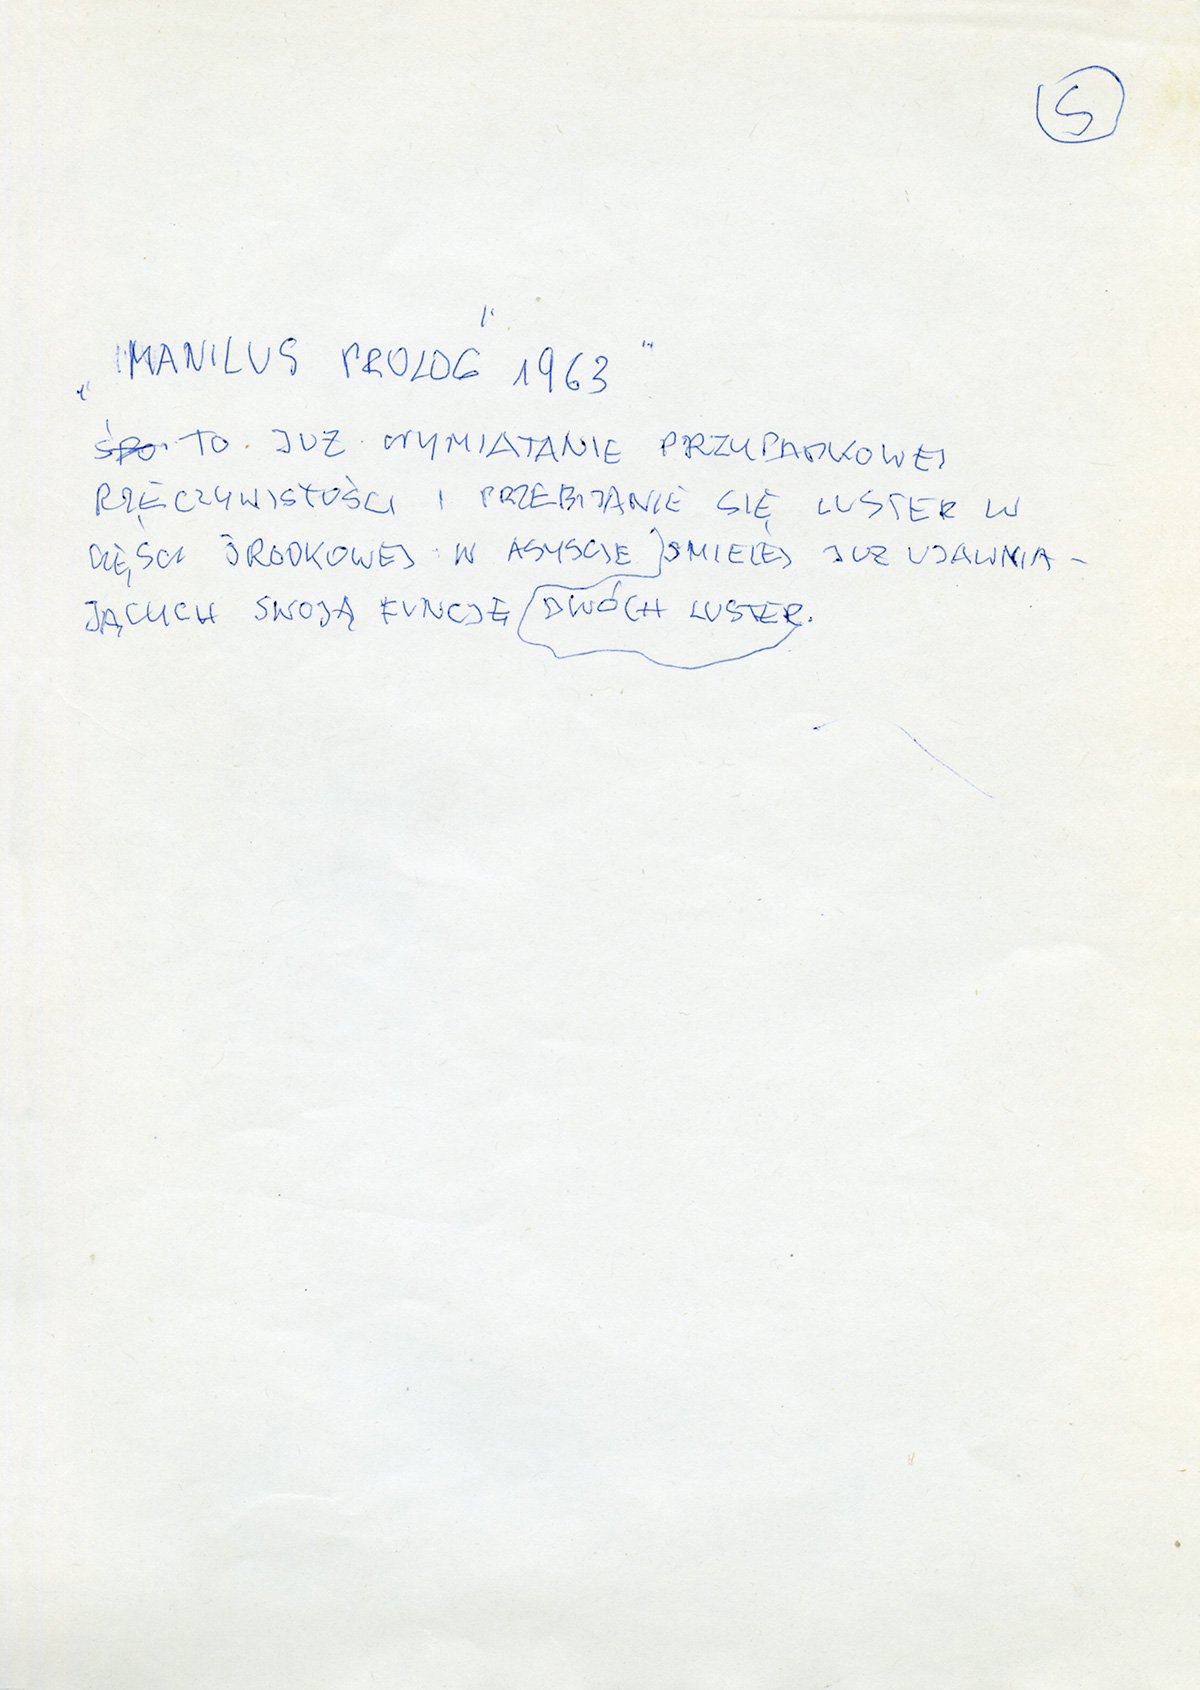 5
„MANILUS PROLOG" 1963"
ŚRO TO JUŻ WYMIATANIE PRZYPADKOWEJ
RZECZYWISTOŚCI I PRZEBIJANIE SIĘ LUSTER W
CZĘŚCI ŚRODKOWEJ W ASYŚCIE ŚMIELEJ JUŻ UJAWNIA-
JĄCYCH SWOJĄ FUNCJĘ DWÓCH LUSTER.